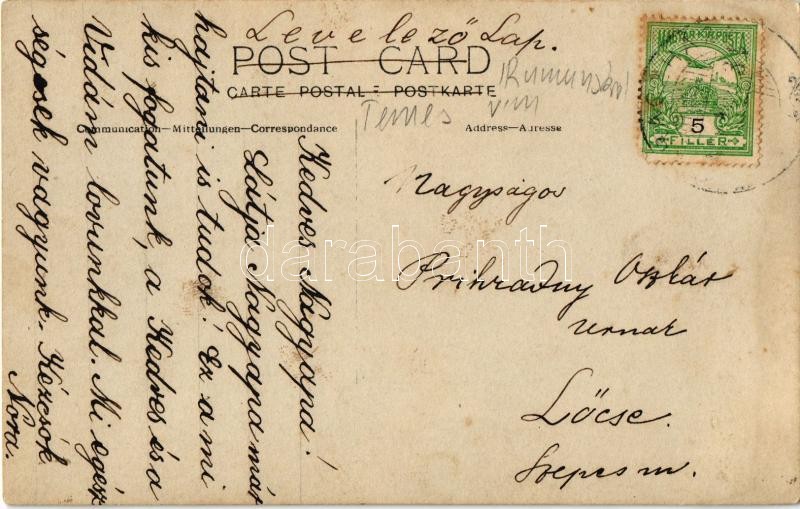 Levelező Lap.
POST CARD
CARTE POSTALE POSTKARTE
Temes
Communication—Mitteilungen—Correspondance
Address—Adresse
MAGYAR KIR. POSTA
5
FILLER
Kedves Nagyapa!
Látja Nagyapa már
hajtani is tudok! Ez a mi
kis fogatunk, a Kedves és a
Vidám lovunkkal. Mi egész
ségesek vagyunk. Kézcsók
Nora.
Nagyságos
Prihradny Oszkár
urnak
Lőcse.
Szepes m.
darabanth